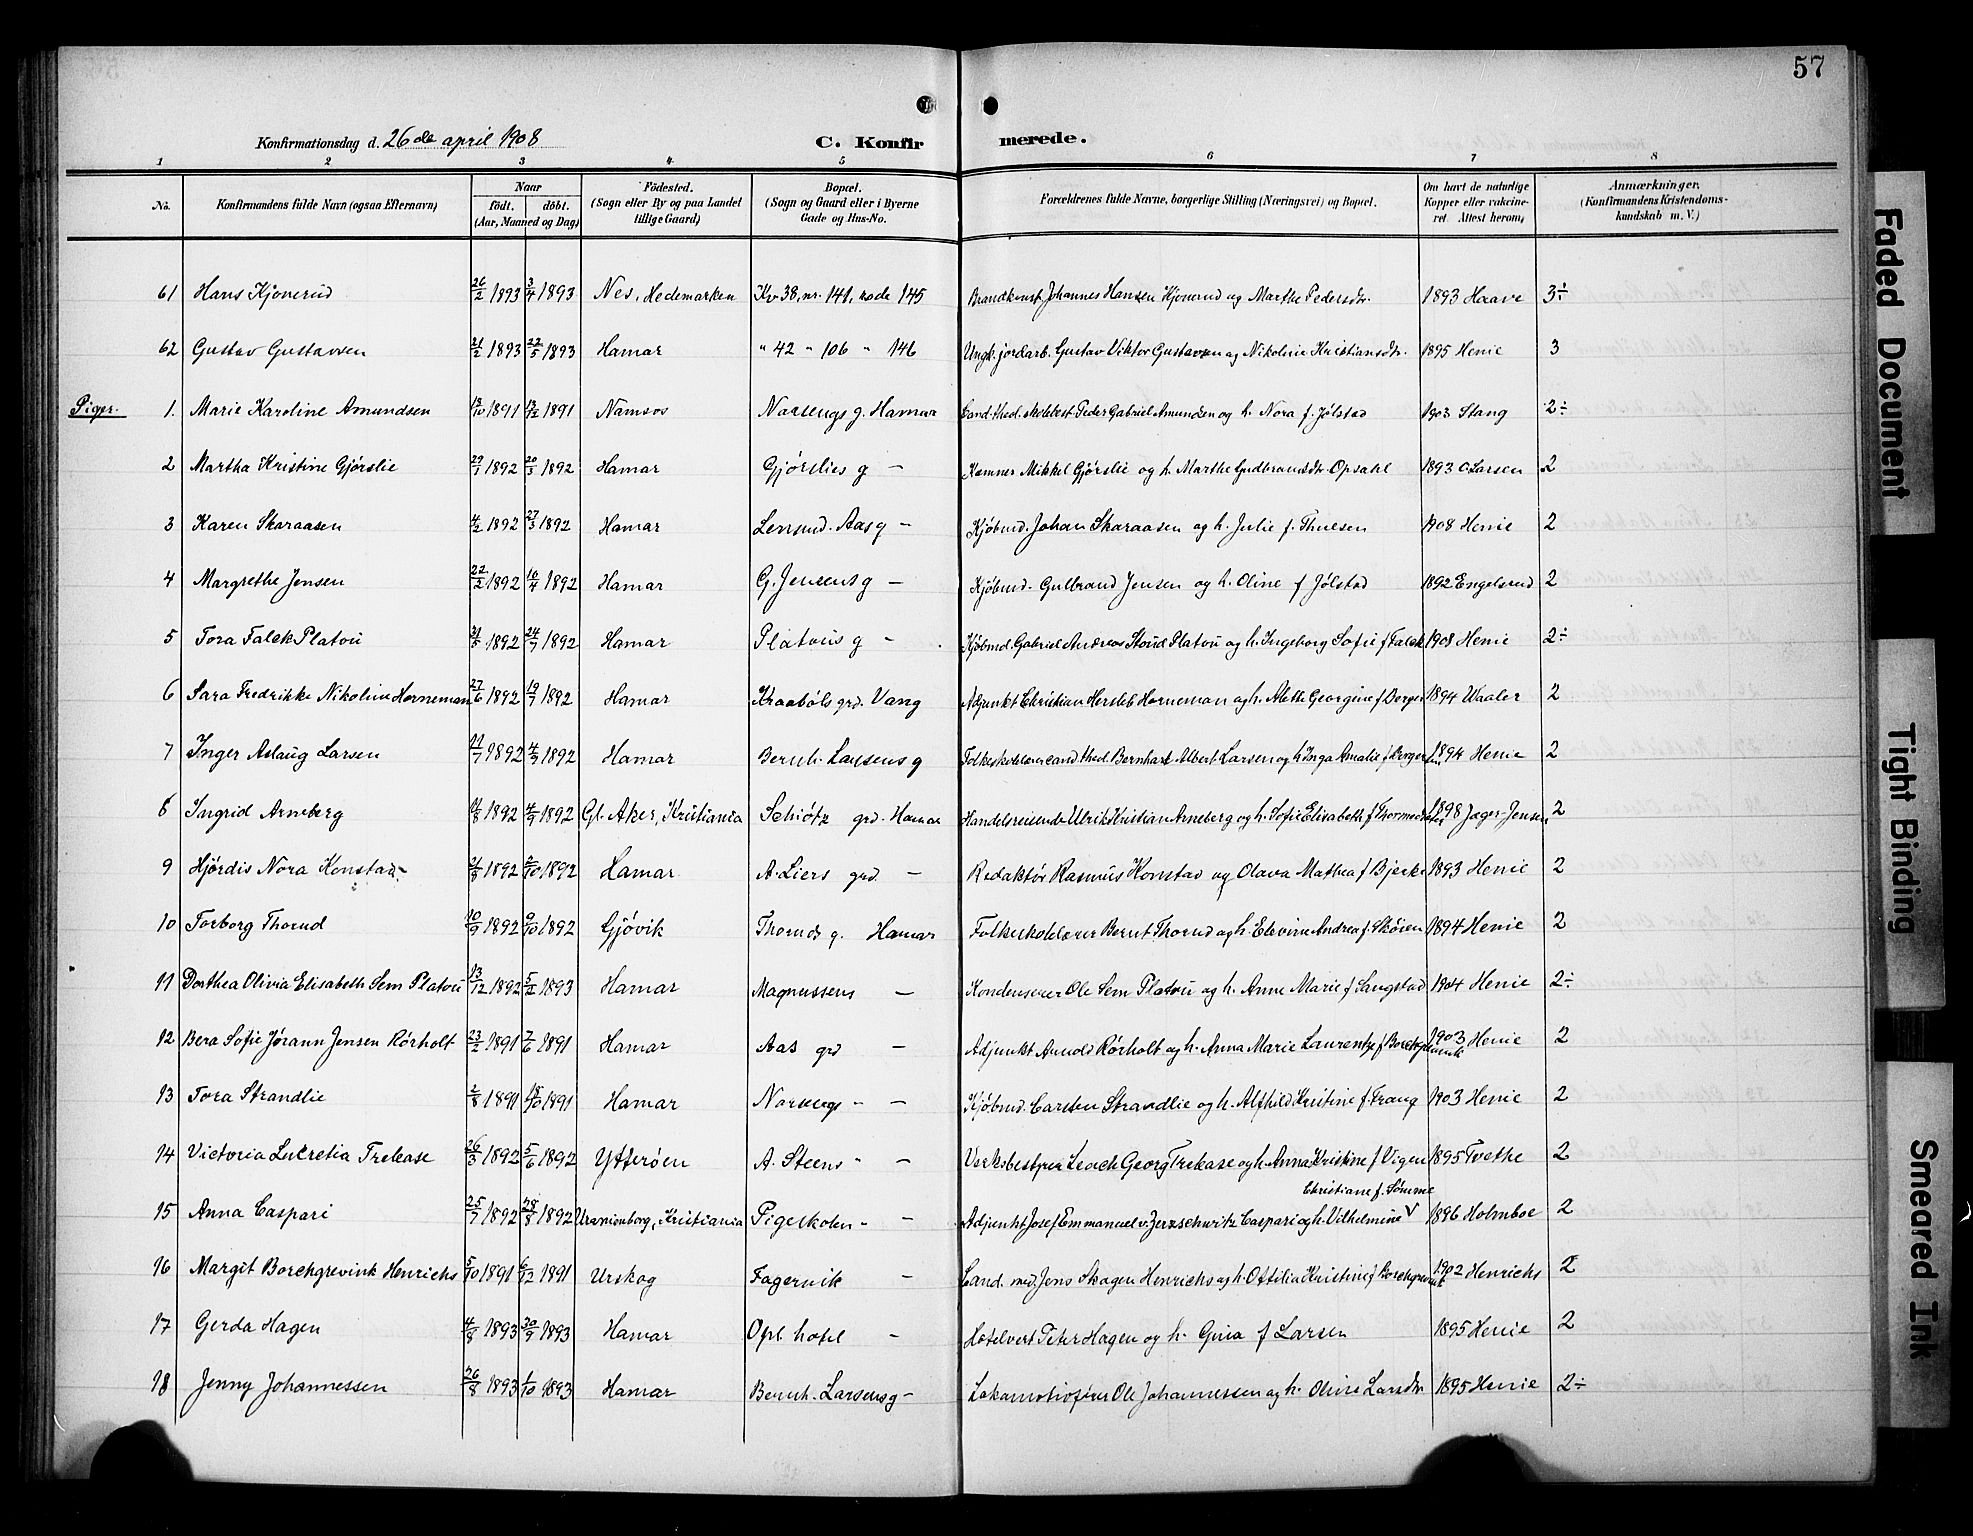 57
Konfirmationsdag d. 26de april 1908 C. Konfirmerede.
1 2 3 4 5 6 7 8
No. Konfirmandens fulde Navn (ogsaa Efternavn) Naar født. døbt. (Aar, Maaned og Dag) Fødested. (Sogn eller By og paa Landet tillige Gaard) Bopæl. (Sogn og Gaard eller i Byerne Gade og Hus-No. Forældrenes fulde Navne, borgerlige Stilling (Næringsvei) og Bopæl. Om havt de naturlige Kopper eller vakcineret. Attest herom. Anmærkninger. (Konfirmandens Kristendomskundskab m. V.)
61 Hans Kjonerud 26/2 1893 3/4 1893 Nes, Hedemarken Kv 38, nr. 141, rode 145 Brandkonst. Johannes Hansen Kjonerud og Marthe Pedersdr. 1893 Haave 3÷
62 Gustav Gustavsen 21/2 1893 22/5 1893 Hamar " 42 " 106 " 146 Ungk. jordarb. Gustav Viktor Gustavsen og Nikoline Kristiansdr. 1895 Henie 3
Piger. 1. Marie Karoline Amundsen 13/10 1891 13/12 1891 Namsos Narsengs g. Hamar Cand. theol. skolebest. Peder Gabriel Amundsen og h. Nora f. Jølstad 1903 Stang 2÷
2 Martha Kristine Gjørslie 29/1 1892 20/3 1892 Hamar Gjørslies g — Kæmner Mikkel Gjørslie og h. Marthe Gudbrandsdr. Opsahl 1893 O. Larsen 2
3 Karen Skaraasen 4/2 1892 27/3 1892 Hamar Lensmd. Aas g — Kjøbmd. Johan Skaraasen og h. Julie f. Thuesen 1908 Henie 2
4 Margrethe Jensen 22/2 1892 16/4 1892 Hamar G. Jensens g — Kjøbmd. Gulbrand Jensen og h. Oline f Jølstad 1892 Engelsrud 2
5 Tora Falck Platou 31/5 1892 24/7 1892 Hamar Platous g — Kjøbmd. Gabriel Andreas Stoud Platou og h. Ingeborg Sofie f Falck 1908 Henie 2÷
6 Sara Fredrikke Nikoline Horneman 27/6 1892 19/7 1892 Hamar Kraabøls grd. Vang Adjunkt Christian Hersleb Horneman og h. Alette Georgine f Berger 1894 Waaler 2
7 Inger Aslaug Larsen 11/7 1892 4/9 1892 Hamar Bernh. Larsens g Folkeskolelærer cand. theol. Bernhard Albert Larsen og h Inga Amalie f Bergersen 1894 Henie 2
8 Ingrid Arneberg 11/8 1892 4/9 1892 Gl. Aker, Kristiania Schiøtz grd. Hamar Handelsreisende Ulrik Kristian Arneberg og h. Sofie Elisabeth f Thormodsæter 1898 Jæger-Jensen 2
9 Hjørdis Nora Konstad 21/8 1892 2/10 1892 Hamar A. Liers grd. — Redaktør Rasmus Konstad og Olava Mathea f Bjerke 1893 Henie 2
10 Torborg Thorud 10/9 1892 9/10 1892 Gjøvik Thoruds g. Hamar Folkeskolelærer Bernt Thorud og h. Elevine Andrea f. Skøien 1894 Henie 2
11 Dorthea Olivia Elisabeth Sem Platou 13/12 1892 5/2 1893 Hamar Magnussens — Kondenserer Ole Sem Platou og h. Anne Marie f Sangstad 1904 Henie 2÷
12 Bera Sofie Jørann Jensen Rørholt 23/2 1891 7/6 1891 Hamar Aas grd — Adjunkt Arnold Rørholt og h. Anna Marie Laurentze f Borchgrevink 1903 Henie 2
13 Tora Strandlie 2/8 1891 18/10 1891 Hamar Narsengs " — Kjøbmd. Carsten Strandlie og h. Alfhild Kristine f. Frang 1903 Henie 2
14 Victoria Lucretia Trelease 26/3 1892 5/6 1892 Ytterøen A. Steens " — Verksbestyrer Leach Georg Trelease og h. Anna Kristine f Vigen 1895 Tvethe 2
15 Anna Caspari 25/7 1892 28/8 1892 Uranienborg, Kristiania Pigeskolen " — Adjunkt Josef Emmanuel v. Zerzschwitz Caspari og h. Vilhelmine V Christiane f. Sømme 1896 Holmboe 2
16 Margit Borchgrevink Henrichs 5/10 1891 6/12 1891 Urskog Fagervik — Cand. med. Jens Skogen Henrichs og h. Ottilia Kristine f Borchgrevink 1902 Henrichs 2
17 Gerda Hagen 4/8 1893 30/9 1893 Hamar Opl. hotel — Hotelvert Peter Hagen og h. Gina f Larsen 1895 Henie 2
18 Jenny Johannessen 26/8 1893 1/10 1893 Hamar Bernh. Larsens g — Lokomotivfører Ole Johannessen og h. Oline Larsdr. 1895 Henie 2÷
Faded Document
Tight Binding
Smeared Ink